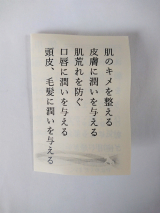 肌のキメを整える
皮膚に潤いを与える
肌荒れを防ぐ
口唇に潤いを与える
頭皮、毛髪に潤いを与える